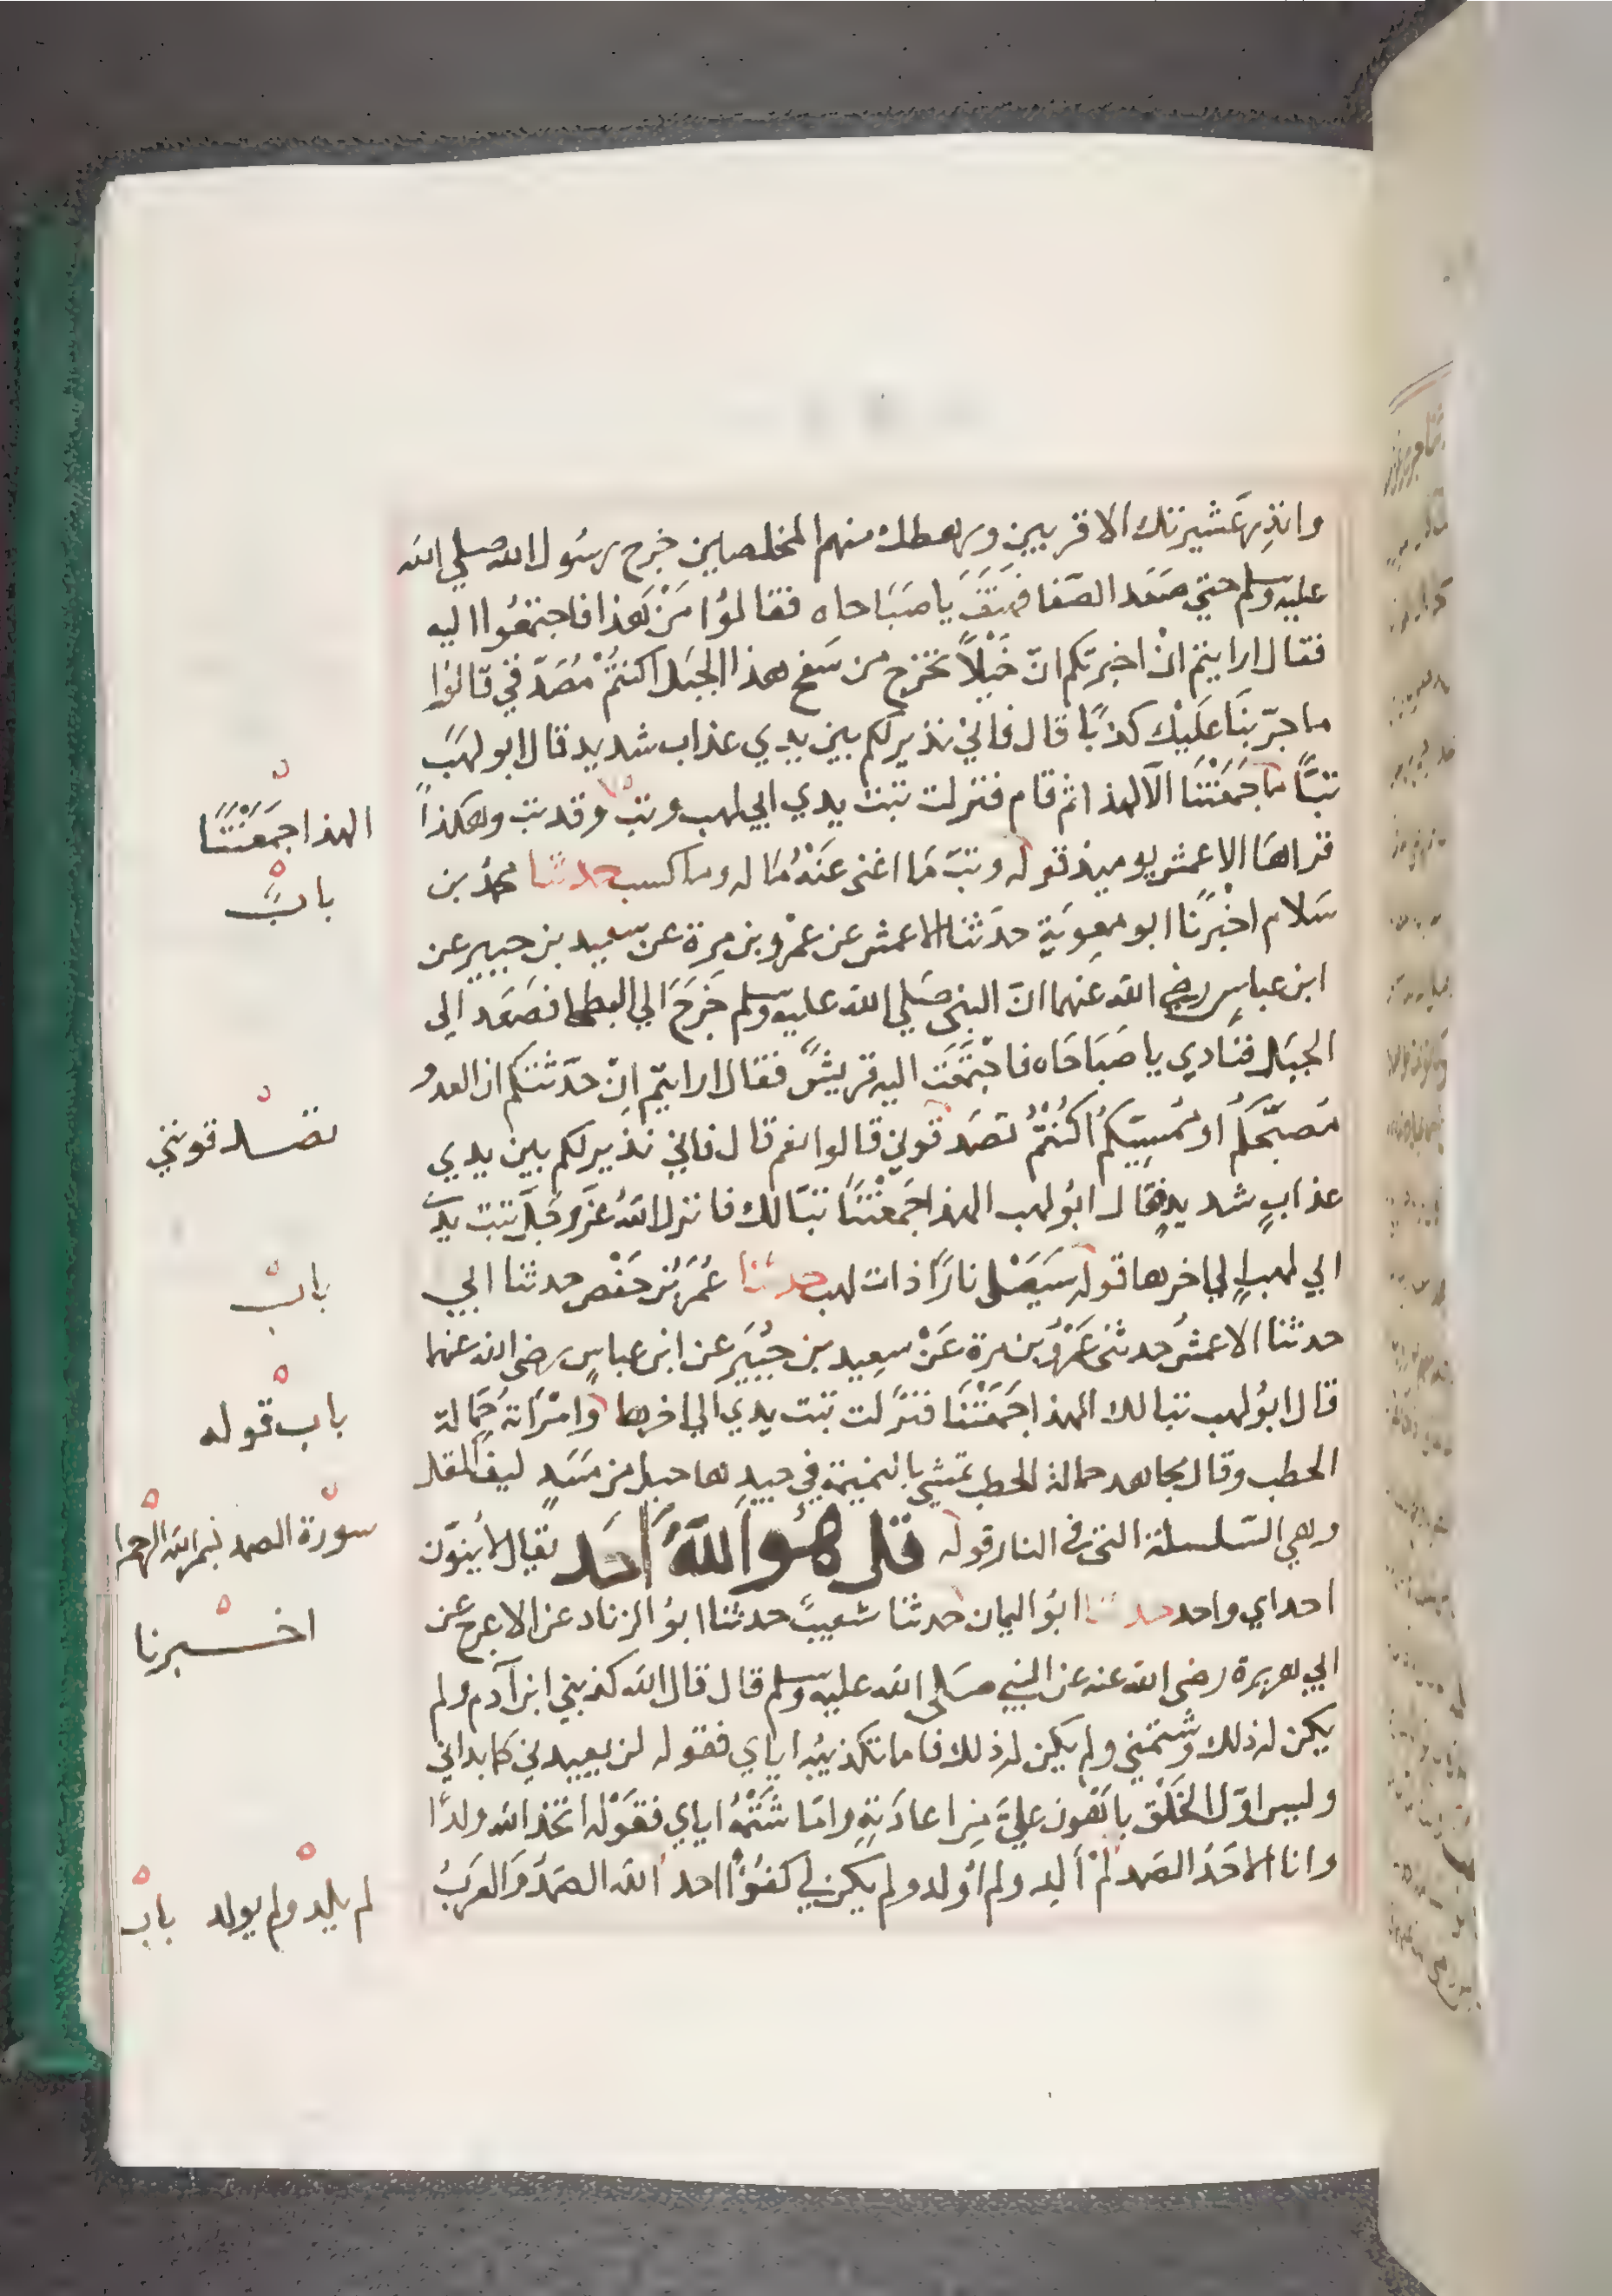 وانذر عشيرتك الاقربين ورهطك منهم المخلصين خرج رسول الله صلي الله
عليه وسلم حتي صعد الصفا فهتف يا صباحاه فقالوا من هذا فاجتمعوا اليه
فقال ارايتم ان اخبرتكم ان خيلاً تخرج من سفح هذا الجبل اكنتم مصدقي قالوا
ما جربنا عليك كذبًا قال فاني نذير لكم بين يدي عذاب شديد قال ابو لهب
تبًّا ما جمعتنا الا لهذا ثم قام فنزلت تبت يدي ابي لهب وتب وقد تب وهكذا
قراها الاعمش يوميذ قوله وتب ما اغنى عنه ماله وما كسب حدثنا محمد بن
سلام اخبرنا ابو معوية حدثنا الاعمش عن عمرو بن مرة عن سعيد بن جبير عن
ابن عباس رضي الله عنهما ان النبي صلي الله عليه وسلم خرج الي البطحا فصعد الي
الجبل فنادي يا صباحاه فاجتمعت اليه قريش فقال ارايتم ان حدثتكم ان العدو
مصبحكم او ممسيكم اكنتم تصدقوني قالوا نعم قال فاني نذير لكم بين يدي
عذاب شديد فقال ابو لهب الهذا جمعتنا تبا لك فانزل الله عز وجل تبت يدي
ابي لهب الي اخرها قوله سيصلى نارًا ذات لهب حدثنا عمر بن حفص حدثنا ابي
حدثنا الاعمش حدثني عمرو بن مرة عن سعيد بن جبير عن ابن عباس رضي الله عنهما
قال ابو لهب تبا لك الهذا جمعتنا فنزلت تبت يدي الي اخرها وامراته حمالة
الحطب وقال مجاهد حمالة الحطب تمشي بالنميمة في جيدها حبل من مسد ليف المقل
وهي السلسلة التي في النار قوله قل هو الله احد يقال لا ينون
احد اي واحد حدثنا ابو اليمان حدثنا شعيب حدثنا ابو الزناد عن الاعرج عن
ابي هريرة رضي الله عنه عن النبي صلى الله عليه وسلم قال قال الله كذبني ابن آدم ولم
يكن له ذلك وشتمني ولم يكن له ذلك فاما تكذيبه اياي فقوله لن يعيدني كما بداني
وليس اول الخلق باهون علي من اعادته واما شتمه اياي فقوله اتخذ الله ولدًا
وانا الاحد الصمد لم الد ولم اولد ولم يكن لي كفوًا احد الله الصمد والعرب
الهذا جمعتنا
باب
تصدقونني
باب
باب قوله
سورة الصمد بسم الله الرحمن
اخبرنا
لم يلد ولم يولد باب